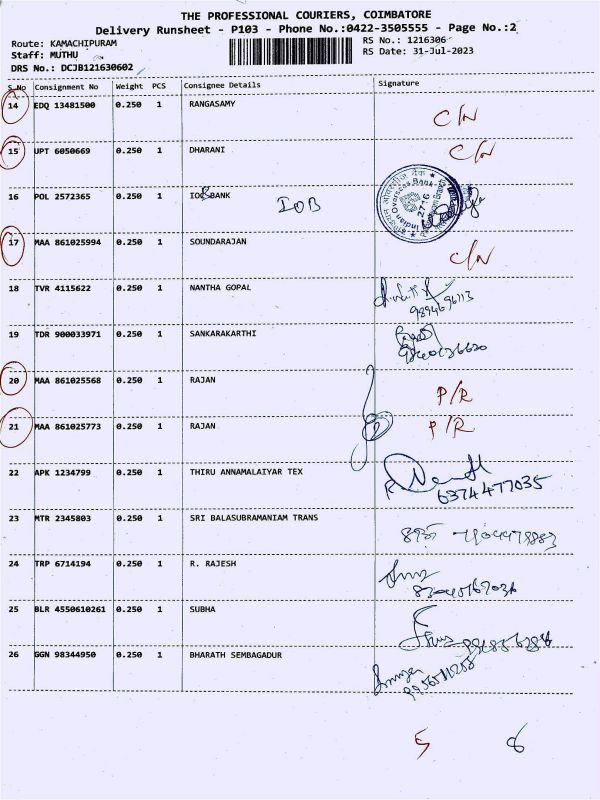 THE PROFESSIONAL COURIERS, COIMBATORE
Delivery Runsheet - P103 - Phone No.:0422-3505555 - Page No.:2
Route: KAMACHIPURAM
RS No.: 1216306
Staff: MUTHU
RS Date: 31-Jul-2023
DRS No.: DCJB121630602
S.No Consignment No Weight PCS Consignee Details Signature
14 EDQ 13481500 0.250 1 RANGASAMY C/N
15 UPT 6050669 0.250 1 DHARANI C/N
16 POL 2572365 0.250 1 IOB BANK IOB
Indian Overseas Bank
2716
17 MAA 861025994 0.250 1 SOUNDARAJAN C/N
18 TVR 4115622 0.250 1 NANTHA GOPAL
9894696113
19 TDR 900033971 0.250 1 SANKARAKARTHI
20 MAA 861025568 0.250 1 RAJAN P/R
21 MAA 861025773 0.250 1 RAJAN P/R
22 APK 1234799 0.250 1 THIRU ANNAMALAIYAR TEX
6374477035
23 MTR 2345803 0.250 1 SRI BALASUBRAMANIAM TRANS
24 TRP 6714194 0.250 1 R. RAJESH
25 BLR 4550610261 0.250 1 SUBHA
26 GGN 98344950 0.250 1 BHARATH SEMBAGADUR
5 8